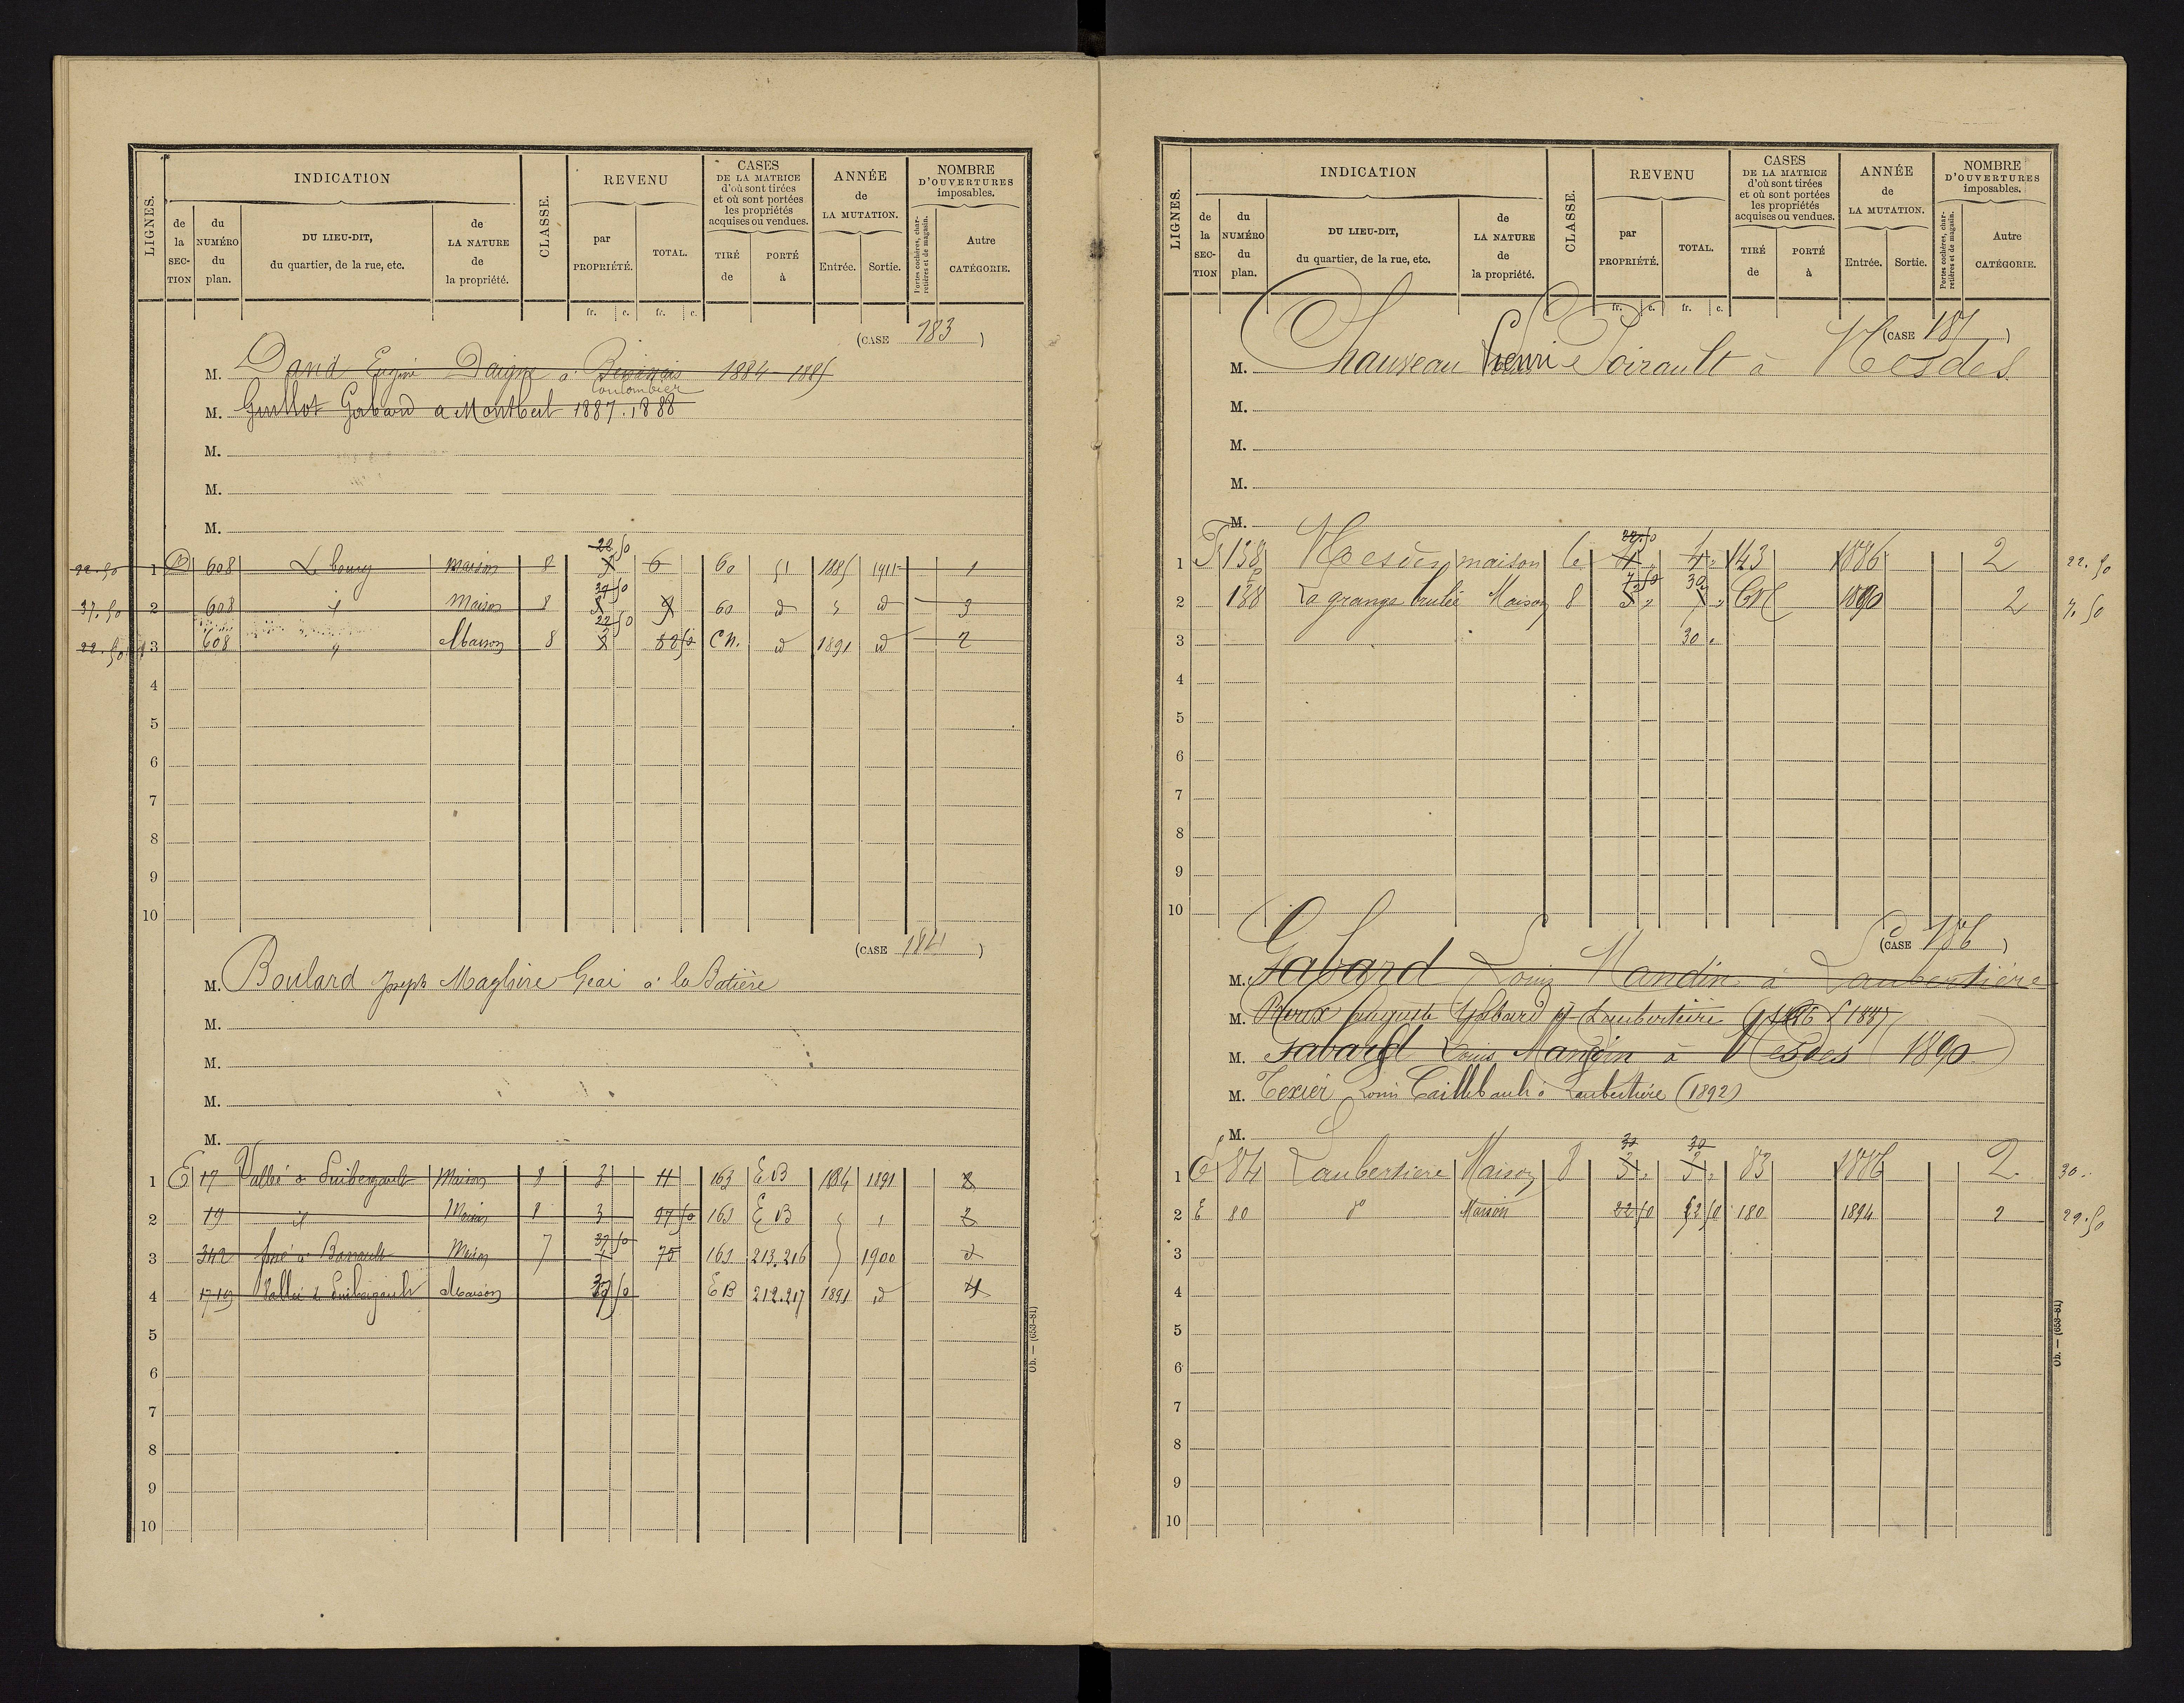 LIGNES. INDICATION CLASSE. REVENU CASES DE LA MATRICE d'où sont tirées et où sont portées les propriétés acquises ou vendues. ANNÉE de LA MUTATION. NOMBRE D'OUVERTURES imposables.
de la SECTION du NUMÉRO du plan. DU LIEU-DIT, du quartier, de la rue, etc. de LA NATURE de la propriété. par PROPRIÉTÉ. TOTAL. TIRÉ de PORTÉ à Entrée. Sortie. Portes cochères, charretières et de magasin. Autre CATÉGORIE.
fr. c. fr. c.
(CASE 183)
M. David Eugène Daigne à 1884-1885
Coulombier
M. Guillot Gabard a Montbeil 1887.1888
M.
M.
M.
22.50 1 D 608 Le bourg Maison 8 22.50 6 60 51 1885 1911 1
37.50 2 608 id Maison 8 37.50 9 60 id id 3
22.50 3 608 Maison 8 22.50 82.50 C.N. id 1891 id 2
4
5
6
7
8
9
10
(CASE 184)
M. Boulard Joseph Magloire Geai à la Batière
M.
M.
M.
M.
1 E 17 Vallée à Puibergault Maison 8 3 11 163 E B 1884 1891 2
2 19 id Maison 8 3 97 50 163 E B 2
3 342 Maison 7 37 50 75 163 213.216 1900 2
4 17.19 Vallée à Puibergault Maison 37 50 E B 212.217 1891 id 4
5
6
7
8
9
10
Ob. — (653-81)
LIGNES. INDICATION CLASSE. REVENU CASES DE LA MATRICE d'où sont tirées et où sont portées les propriétés acquises ou vendues. ANNÉE de LA MUTATION. NOMBRE D'OUVERTURES imposables.
de la SECTION du NUMÉRO du plan. DU LIEU-DIT, du quartier, de la rue, etc. de LA NATURE de la propriété. par PROPRIÉTÉ. TOTAL. TIRÉ de PORTÉ à Entrée. Sortie. Portes cochères, charretières et de magasin. Autre CATÉGORIE.
fr. c. fr. c.
(CASE 185)
M. Chauveau Henri Poirault à Mesdes
M.
M.
M.
M.
1 138 maison 6 22.50 4 143 1886 2 22.50
2 188 La grange brulée Maison 8 7.50 30 C N 1890 2 7.50
3 30
4
5
6
7
8
9
10
(CASE 186)
M. Gabard Louis Mandin à Laubertière
M. Auguste Gabard à Laubertière (1886) 1887
M. Gabard Louis Mandin à Mesdes (1890)
M. Texier Louis Caillebault à Laubertière (1892)
M.
1 E 84 Laubertiere Maison 8 30 30 83 1886 2 30
2 E 80 do Maison 22 50 52 50 180 1894 2 22.50
3
4
5
6
7
8
9
10
Ob. — (653-81)